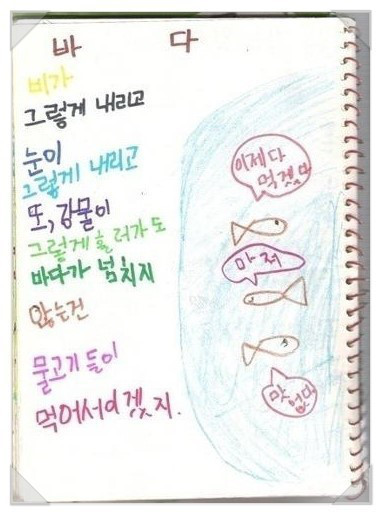 바 다
비가
그렇게 내리고
눈이
그렇게 내리고
또, 강물이
그렇게 흘러가도
바다가 넘치지
않는건
물고기들이
먹어서이겠지.
이제다
먹겠어
마저
맛 없어